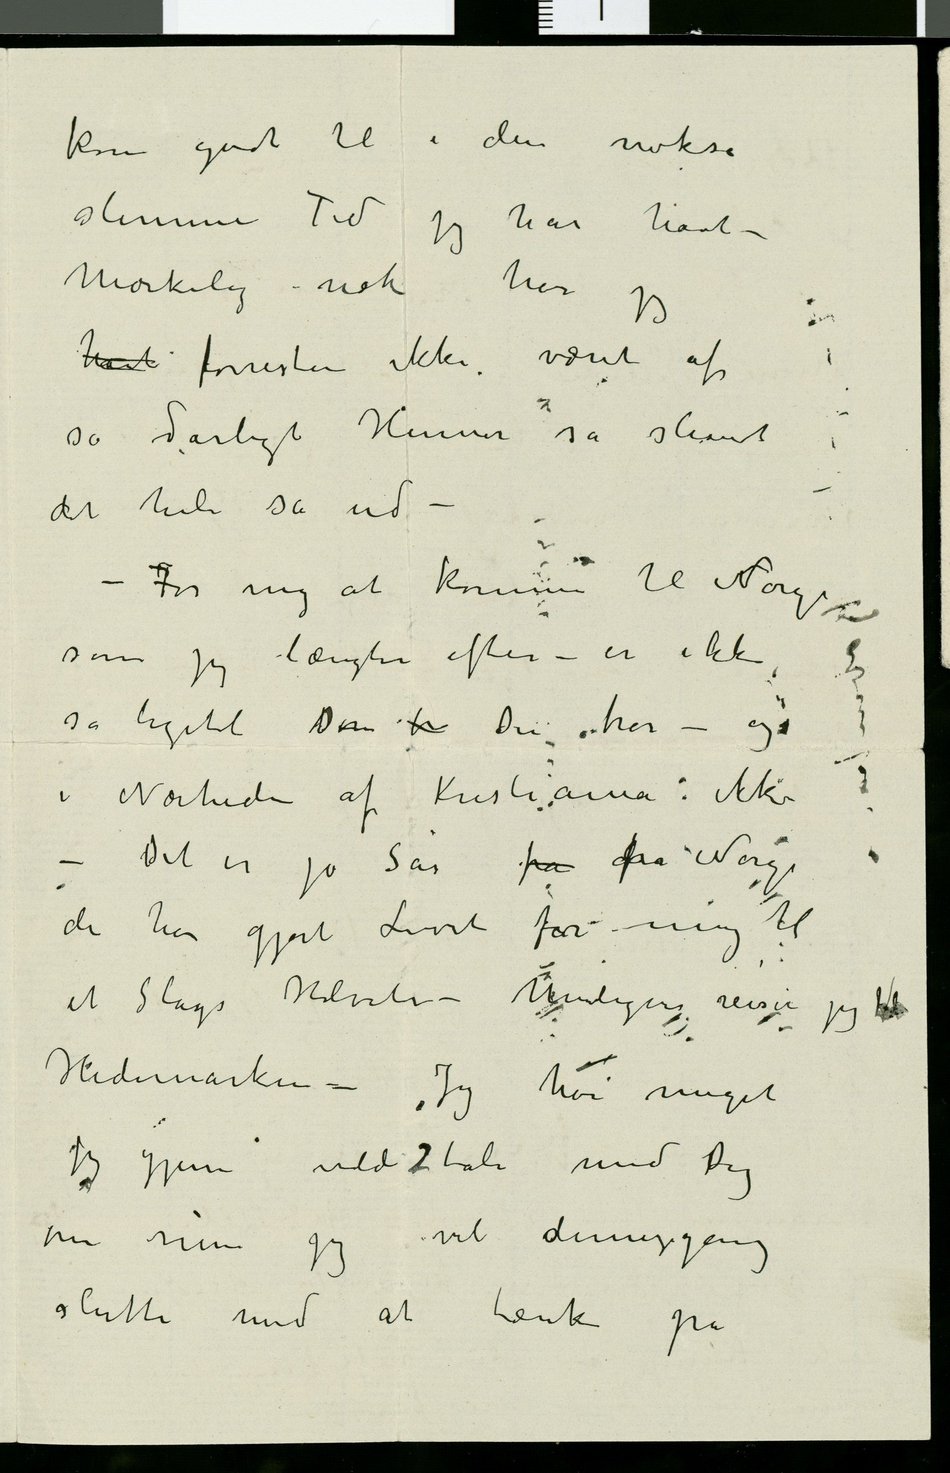 kom godt til i den nokså
slemme Tid jeg har havt –
Mærkelig nok har jeg
havt forresten ikke været af
så dårligt Humør så slemt
det hele så ud –
– For mig at komme til Norge
som jeg længter efter – er ikke
så ligetil Du tror – og
i Nærheden af Kristiania ikke
– Det er jo Sår fra fra Norge
de har gjort Livet for mig til
et Slags Helvete – Muligens reiser jeg til
Hedemarken – Jeg har meget
jeg gjerne vilde tale med Dig
om men jeg vil dennegang
slutte med at tænke på